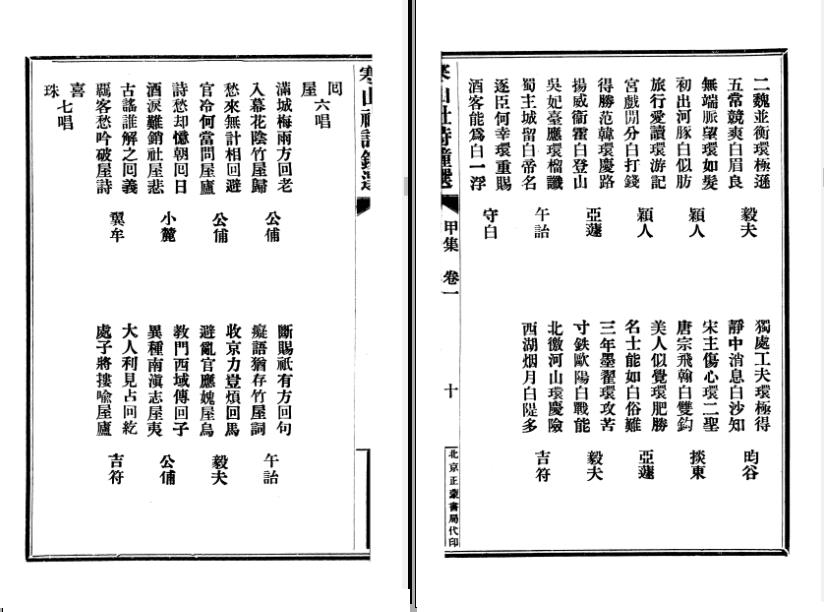 二魏並衡環極遜
五常競爽白眉良
毅夫
獨處工夫環極得
靜中消息白沙知
昀谷
無端脈望環如髮
初出河豚白似肪
穎人
宋主傷心環二聖
唐宗飛翰白雙鈎
掞東
旅行愛讀環游記
宮戲閒分白打錢
穎人
美人似覺環肥勝
名士能如白俗難
亞蘧
得勝范韓環慶路
揚威衞霍白登山
亞蘧
三年墨翟環攻苦
寸鉄歐陽白戰能
毅夫
吳妃臺應環榴讖
蜀主城留白帝名
午詒
北徼河山環慶險
西湖烟月白隄多
吉符
逐臣何幸環重賜
酒客能爲白一浮
守白
寒山社詩鐘選
甲集 卷一
十
北京正蒙書局代印
寒山社詩鐘選
囘
屋 六唱
滿城梅雨方回老
入幕花陰竹屋歸
公俌
斷賜祇有方回句
癡語猶存竹屋詞
午詒
愁來無計相回避
官冷何當問屋廬
公俌
收京力豈煩回馬
避亂官應媿屋烏
毅夫
詩愁却憶朝囘日
酒淚難銷社屋悲
小麓
教門西域傳回子
異種南滇志屋夷
公俌
古謠誰解之回義
羈客愁吟破屋詩
翼牟
大人利見占回紇
處子將摟喻屋廬
吉符
喜
珠 七唱